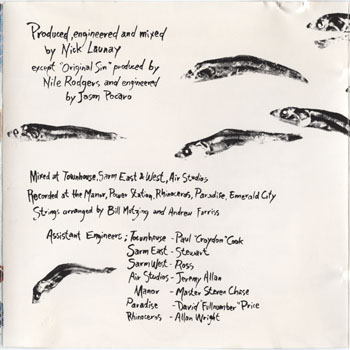 Produced, engineered and mixed
by Nick Launay
except "Original Sin" produced by
Nile Rodgers, and engineered
by Jason Pocaro
Mixed at Townhouse, Sarm East & West, Air Studios
Recorded at the Manor, Power Station, Rhinoceros, Paradise, Emerald City
Strings arranged by Bill Motzing and Andrew Farriss
Assistant Engineers; Townhouse - Paul "Croydon" Cook
Sarm East - Stewart
Sarm West - Ross
Air Studios - Jeremy Allan
Manor - Master Steven Chase
Paradise - David "Fullnumber" Price
Rhinoceros - Allan Wright